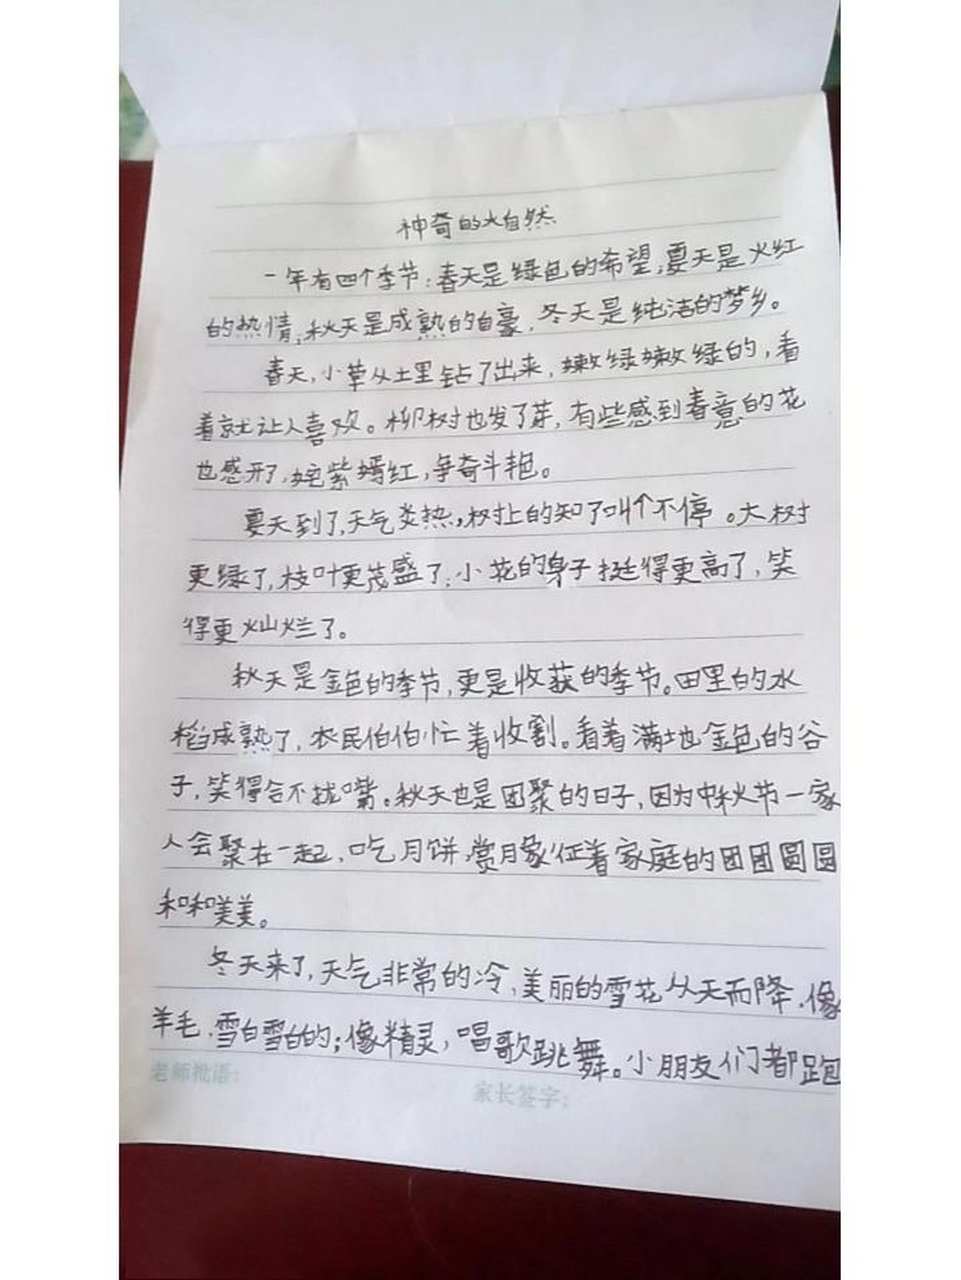 神奇的大自然
一年有四个季节：春天是绿色的希望，夏天是火红
的热情，秋天是成熟的自豪，冬天是纯洁的梦乡。
春天，小草从土里钻了出来，嫩绿嫩绿的，看
着就让人喜欢。柳树也发了芽，有些感到春意的花
也感开了，姹紫嫣红，争奇斗艳。
夏天到了，天气炎热，树上的知了叫个不停。大树
更绿了，枝叶更茂盛了，小花的身子挺得更高了，笑
得更灿烂了。
秋天是金色的季节，更是收获的季节。田里的水
稻成熟了，农民伯伯忙着收割。看着满地金色的谷
子，笑得合不拢嘴。秋天也是团聚的日子，因为中秋节一家
人会聚在一起，吃月饼，赏月象征着家庭的团团圆圆
和和美美。
冬天来了，天气非常的冷，美丽的雪花从天而降，像
羊毛，雪白雪白的；像精灵，唱歌跳舞。小朋友们都跑
老师批语：
家长签字：